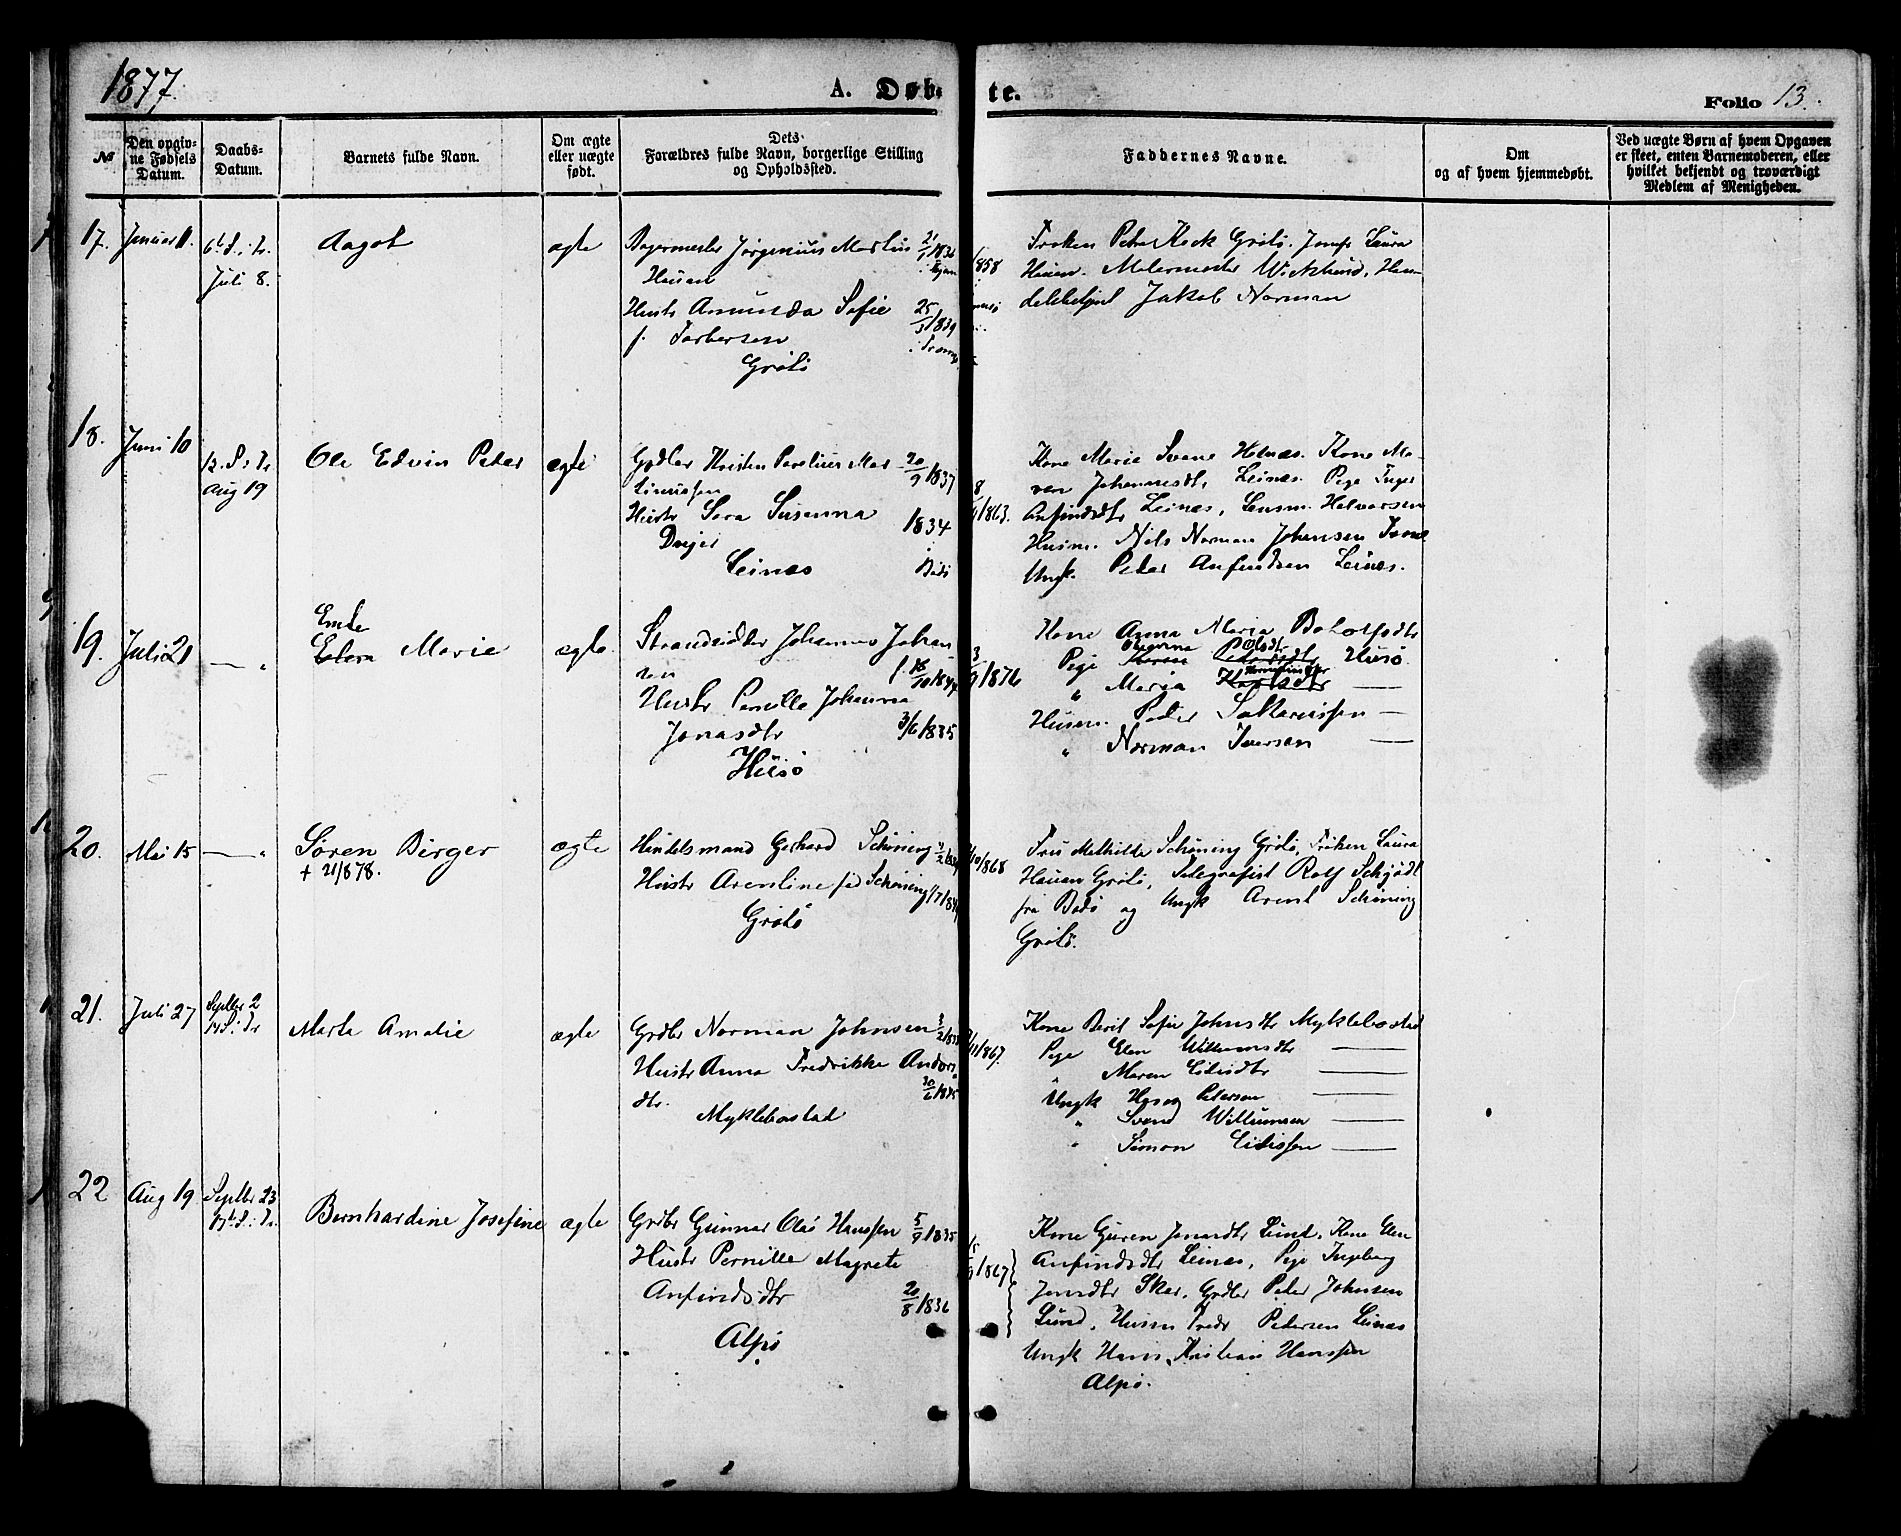 1877.
A. Døb-
te.
Folio 13.
№
Den opgiv-
ne Fødsels
Datum.
Daabs-
Datum.
Barnets fulde Navn.
Om ægte
eller uægte
født.
Dets
Forældres fulde Navn, borgerlige Stilling
og Opholdssted.
Faddernes Navne.
Om
og af hvem hjemmedøbt.
Ved uægte Børn af hvem Opgaven
er skeet, enten Barnemoderen, eller
hvilket bekjendt og troværdigt
Medlem af Menigheden.
17. Januar 1.
6te S. i. Tr.
Juli 8.
Aagot
ægte
Bagermester Jørginius Martin
Hauan
Hustr Amunda Sofie 25/3 1839
f. Torbersen
Grøtø
1858
Frøken Petra Kock Grøtø. Jomfr Laura
Hauan. Malermester Wicklund, Han-
delsbetjent Jakob Norman
18. Juni 10
12. S. i Tr
Aug 19
Ole Edvin Peder
ægte
Grdbr Kristen Parelius Mar 20/9 1837
tinussen
Hustr Sara Susanna 1834
Dreyer
Leinæs Bodø
8/ 1863.
Kone Marie Svane Helnæs. Kone Ma-
ren Johannesdtr, Leinæs. Pige Inger
Anfindsdtr Leinæs, Lensm. Halvorsen
Husm. Nils Norman Johansen
Ungk. Peder Anfindsen Leinæs.
19. Juli 21
— "
Emte
Elera Marie
ægte
Strandsidder Johannes Johan
sen f. 18/10 1844
Hustr Pernille Johanna
Jonasdtr 3/6 1835
Husø
3/ 1876
Kone Anna Maria Bolotsdtr
Pige Olufsdtr Husø
" Maria —
Husm. Peder Sakariassen —
" Norman Iversen —
20. Mai 15
— "
Søren Birger
+ 21/878.
ægte
Handelsmand Gerhard Schøning
Hustr Arentine fød Schøning
Grøtø
/10 1868
Fru Mathilde Schøning Grøtø, Frøken Laura
Hauan Grøtø, Telegrafist Rolf Schjødt
fra Bodø og Ungk Arent Schøning
Grøtø.
21. Juli 27
Septbr 2
14 S. i Tr
Marta Amalie
ægte
Grdbr Norman Johnsen
Hustr Anna Fredrikke Anders
dtr. 30/6 1835
Myklebostad
/11 1867.
Kone Berit Sofie Johnsdtr Myklebostad
Pige Elen Willumsdtr —
" Maren Eidisdtr —
Ungk Hans Petersen —
" Svend Willumsen —
" Simon Eidissen —
22 Aug 19
Septbr 23
17de S. i. Tr.
Bernhardine Josefine
ægte
Grdbr Gunnar Olai Hanssen 5/9 1835
Hustr Pernille Magrete
Anfindsdtr 20/8 1836
Alpø
1867
Kone Guren Jonasdtr Lund, Kone Elen
Anfindsdtr Leinæs, Pige Ingeborg
Jonsdtr Skar, Grdbr Peder Johnsen
Lund, Husm Peder Pedersen Leinæs
Ungk Hans Kristian Hanssen
Alpø.